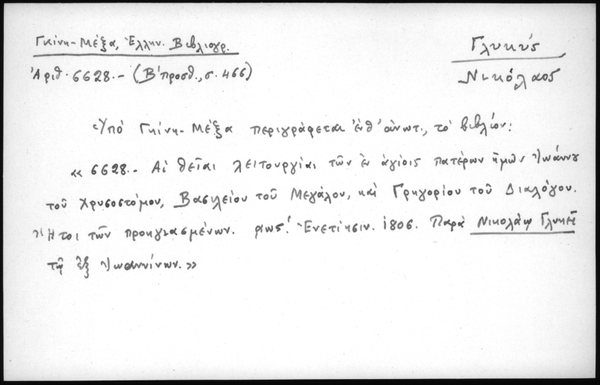 Γκίνη-Μέξα, Ἑλλην. Βιβλιογρ.
Γλυκύς
Ἀριθ. 6628.- (Β' προσθ., σ. 466)
Νικόλαος
Ὑπό Γκίνη-Μέξα περιγράφεται ἐνθ' ἀνωτ., τό βιβλίον:
« 6628.- Αἱ θεῖαι λειτουργίαι τῶν ἐν ἁγίοις πατέρων ἡμῶν Ἰωάννου
τοῦ Χρυσοστόμου, Βασιλείου τοῦ Μεγάλου, καί Γρηγορίου τοῦ Διαλόγου.
Ἤτοι τῶν προηγιασμένων. αως! Ἐνετίησιν. 1806. Παρά Νικολάῳ Γλυκεῖ
τῷ ἐξ Ἰωαννίνων.»